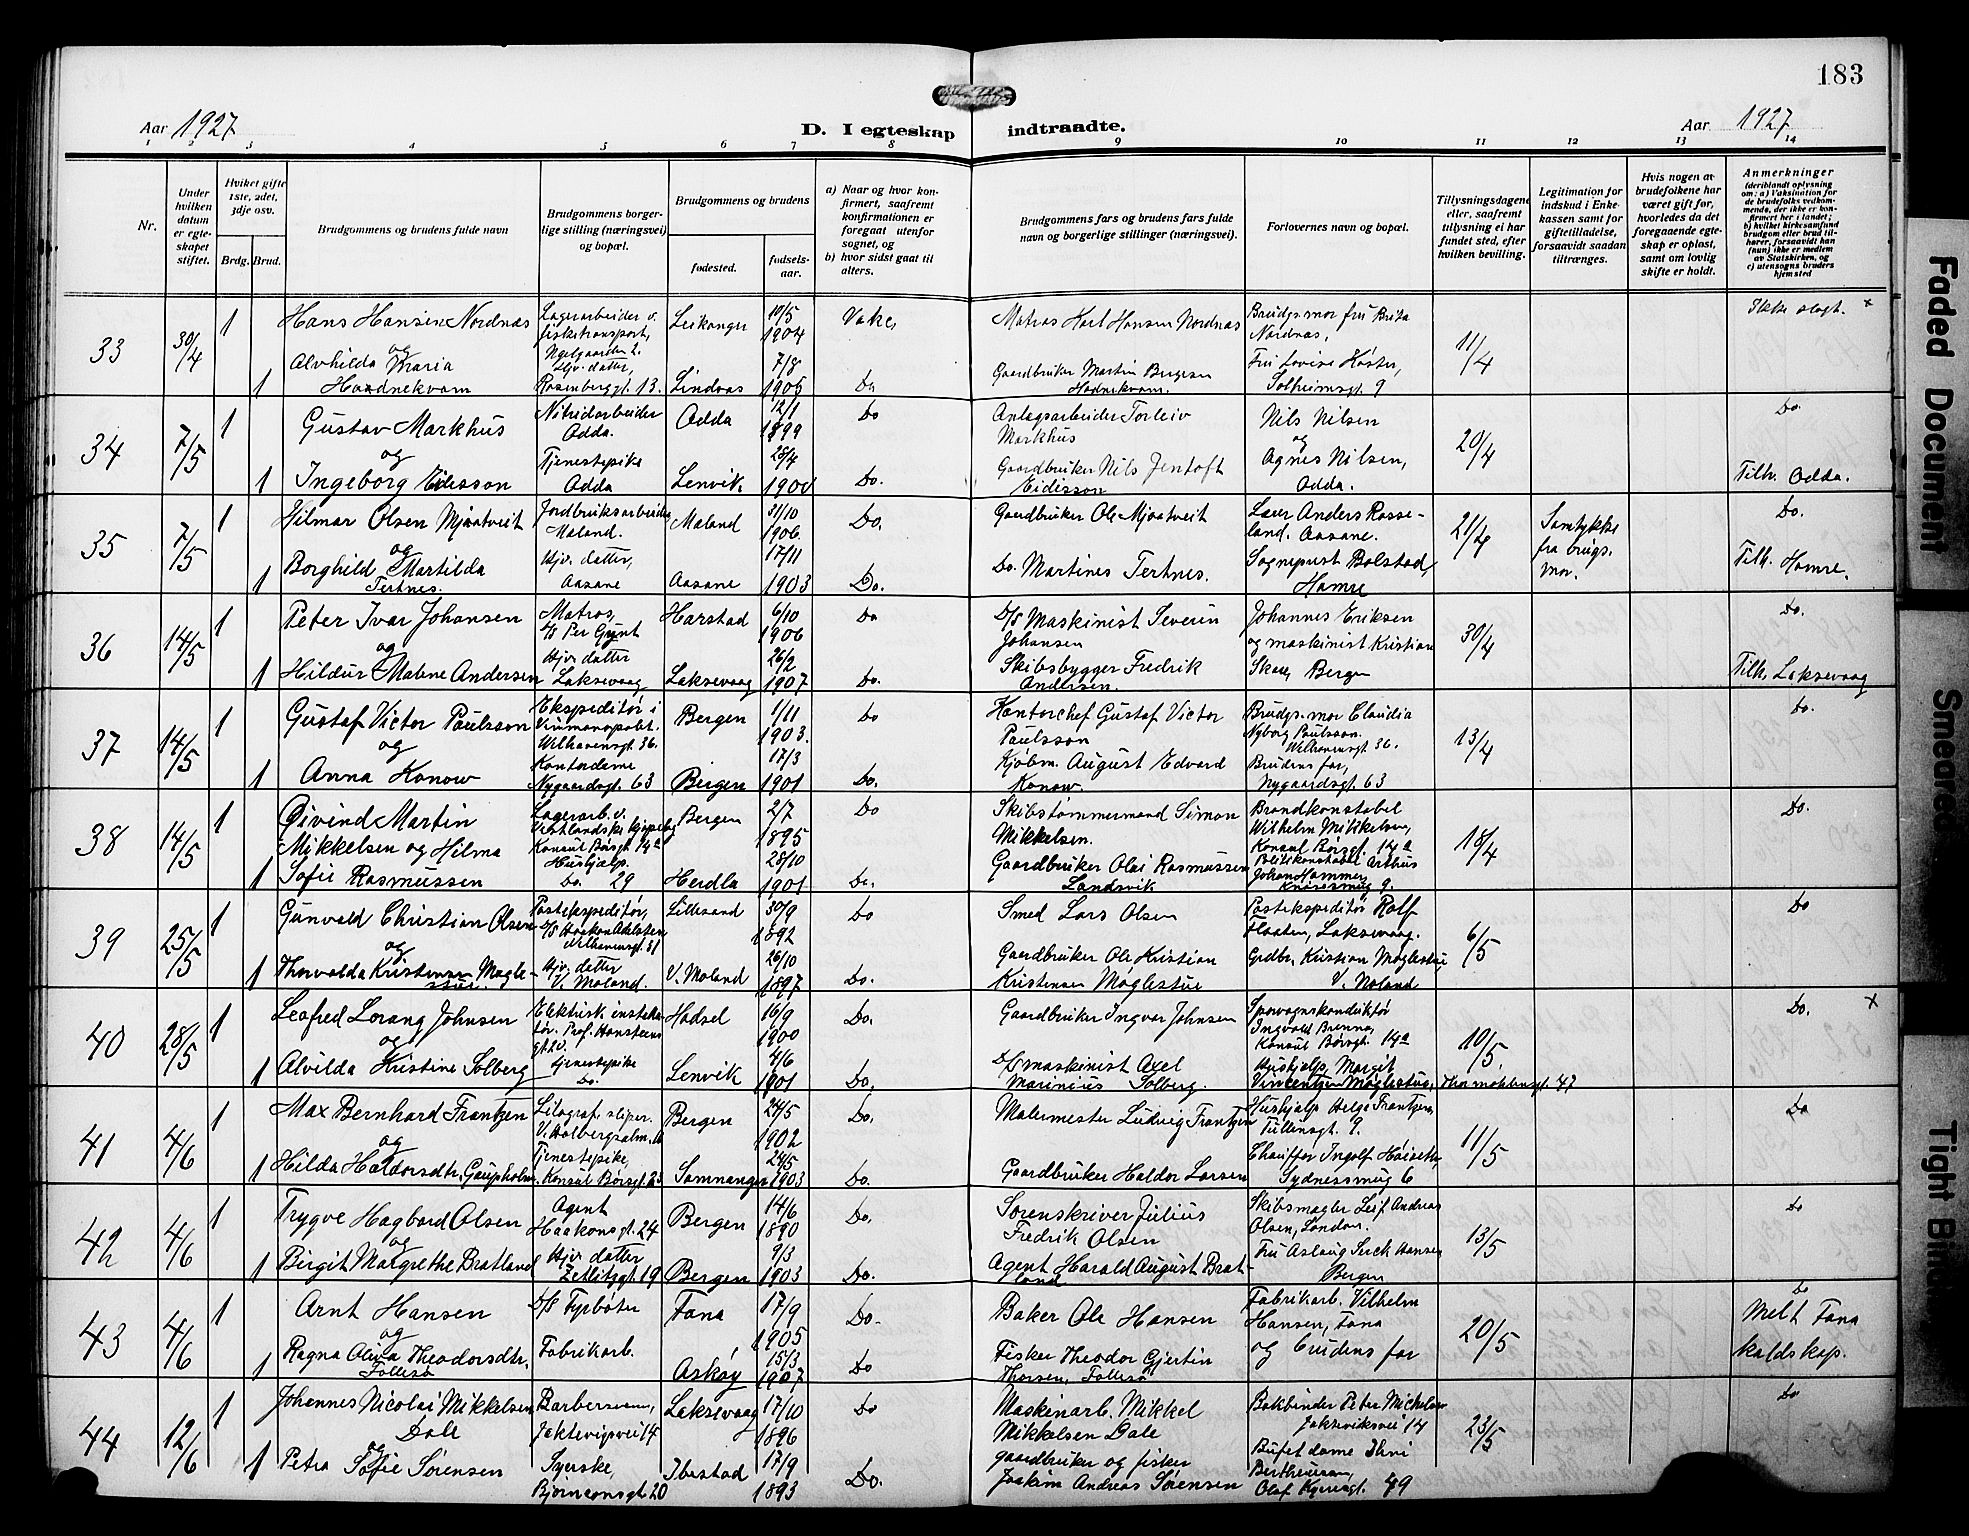 183
Aar 1927
D. I egteskap indtraadte.
Aar 1927
1 2 3 4 5 6 7 8 9 10 11 12 13 14
Nr.
Under hvilken datum er egteskapet stiftet.
Hvilket gifte 1ste, 2det, 3dje osv.
Brdg. Brud.
Brudgommens og brudens fulde navn
Brudgommens borgerlige stilling (næringsvei) og bopæl.
Brudgommens og brudens
fødested.
fødselsaar.
a) Naar og hvor konfirmert, saafremt konfirmationen er foregaat utenfor sognet, og
b) hvor sidst gaat til alters.
Brudgommens fars og brudens fars fulde navn og borgerlige stillinger (næringsvei).
Forlovernes navn og bopæl.
Tillysningsdagene eller, saafremt tillysning ei har fundet sted, efter hvilken bevilling.
Legitimation for indskud i Enkekassen samt for giftetilladelse, forsaavidt saadan tiltrænges.
Hvis nogen av brudefolkene har været gift før, hvorledes da det foregaaende egteskap er opløst, samt om lovlig skifte er holdt.
Anmerkninger
(deriblandt oplysning om: a) Vaksination for de brudefolks vedkommende, der ikke er konfirmert her i landet; b) hvilket kirkesamfund brudgom eller brud tilhører, forsaavidt han (hun) ikke er medlem av Statskirken, og c) utensogns bruders hjemsted
33 30/4 1 Hans Hansen Nordnæs Lagerarbeider v. fisketransport, Leikanger 10/5 1904 Vake, Matros Karl Hansen Nordnæs Brudgs. mor fru Brita Nordnæs, 11/4 Ikke slegt. x
og Alvhilda Maria Hodnekvam 1 Hjv. datter, Rosenberggt. 13. Lindaas 7/8 1905 Do Gaardbruker Martin Bergesen Hodnekvam. Fru Lovise Høster, Solheimsgt. 9
34 7/5 1 Gustav Markhus Nitridarbeider Odda. Odda 12/1 1899 Do Anlegsarbeider Torleiv Markhus Nils Nilsen 20/4 Do.
og
1 Ingeborg Eidisson Tjenestepike Odda Lenvik 28/4 1900 Do. Gaardbruker Nils Jentoft Eidisson og Agnes Nilsen, Odda. Tilh. Odda.
35 7/5 1 Hilmar Olsen Mjaatveit Jordbruksarbeider Meland. Meland 31/10 1906. Do. Gaardbruker Ole Mjaatveit Lærer Anders Rosseland, Aasane. 21/4 Samtykke fra brugs. mor. Do.
og
1 Borghild Martilda Tertnes. Hjv. datter, Aasane Aasane 17/11 1903 Do. Do. Martines Tertnes. Sogneprest Bolstad, Hamre Tilh. Hamre.
36 14/5 1 Peter Ivar Johansen Matros, D/S Per Gynt Harstad 6/10 1906 Do D/S Maskinist Severin Johansen Johannes Eriksen 30/4 Do.
og
1 Hildur Malene Andersen Hjv. datter Laksevaag Laksevaag 26/2 1907 Do. Skibsbygger Fredrik Andersen. og maskinist Kristian Skaar, Bergen Tilh. Laksevaag
37 14/5 1 Gustaf Victor Paulsson Ekspeditør i Vinmonopolet. Welhavensgt. 36. Bergen 1/11 1903. Do Kontorchef Gustaf Victor Paulsson Brudgs. mor Claudia Nyborg Paulsson. Welhavensgt. 36. 13/4 Do.
og
1 Anna Konow Kontordame Nygaardsgt. 63 Bergen 17/3 1901 Do. Kjøbm. August Edvard Konow. Brudens far, Nygaardsgt. 63
38 14/5 1 Øivind Martin Mikkelsen og Hilma Lagerarb. v. Konsul Børsgt. 14a Bergen 2/7 1895 Do Skibstømmermand Simon Mikkelsen. Brandkonstabel Wilhelm Mikkelsen, Konsul Børsgt. 14a 18/4 Do.
1 Sofie Rasmussen Hushjælp. Do. 29 Herdla 28/10 1901 Do. Gaardbruker Olai Rasmussen Landsvik Politikonstabel Arthur Johan Hammer,
39 25/5 1 Gunvald Christian Olsen Postekspeditør, D/S Haakon Adelsten Welhavensgt. 31 Lillesand 30/9 1892 Do Smed Lars Olsen Postekspeditør Rolf Flaaten, Laksevaag. 6/5 Do
og
1 Thorvalda Kristensen Møglestue. Hjv. datter V. Moland. V. Moland 26/10 1897 Do. Gaardbruker Ole Kristian Kristensen Møglestue Grdbr. Kristian Møglestue, V. Moland
40 28/5 1 Leofred Lorang Johnsen Elektrisk installatør. Prof. Hansteens gt. Hadsel 16/9 1900 Do. Gaardbruker Ingvar Johnsen Sporvognskonduktør Ingvald Brenna, Konsul Børsgt. 14a 10/5 Do. x
og
1 Alvilda Kristine Solberg Tjenestepike Do. Lenvik 4/6 1901 Do. D/S maskinist Axel Marinius Solberg. Hushjælp, Margit Vincentsen Møglestue, Thormøhlensgt. 47
41 4/6 1 Max Bernhard Frantzen Litograf. sliper. V. Holbergsalm. Bergen 24/5 1902 Do. Malermester Ludvig Frantzen Hushjælp Helga Frantzen, Tullinsgt. 9. 11/5 Do
og
1 Hilda Haldorsdtr. Gaupholm. Tjenestepike, Konsul Børsgt. 23 Samnanger 24/5 1903 Do. Gaardbruker Haldor Larsen Chauffør Ingolf Høiseth, Sydnessmug 6
42 4/6 1 Trygve Hagbard Olsen Agent Haakonsgt. 24 Bergen 14/6 1890 Do. Sorenskriver Julius Fredrik Olsen Skibsmægler Leif Andreas Olsen, London. 13/5 Do
og
1 Birgit Margrethe Bratland Hjv. datter Zetlitzgt. 19 Bergen 9/3 1903 Do. Agent Harald August Bratland Fru Aslaug Hansen Bergen
43 4/6 1 Arnt Hansen D/S Fyrbøter Fana 17/9 1905 Do. Baker Ole Hansen Fabrikarb. Vilhelm Hansen, Fana 20/5 Do Melt Fana kaldskap.
og
1 Ragna Oliva Theodorsdtr. Follesø Fabrikarb. Askøy 15/3 1907 Do Fisker Theodor Gjertin Thorsen, Follesø og brudens far
44 12/6 1 Johannes Nicolai Mikkelsen Dale Barbersvenn, Jektevigsvei 14 Laksevaag 17/10 1896 Do Maskinarb. Mikkel Mikkelsen Dale Bokbinder Peter Michelsen Jekteviksvei 14 23/5 Do
og
1 Petra Sofie Sørensen Syerske, Bjørnsonsgt. 20 Ibestad 17/9 1893 Do. gaardbruker og fisker Joakim Andreas Sørensen Bufetdame Berthensen, Olaf Kyrresgt. 49
Faded Document
Smeared
Tight Bind